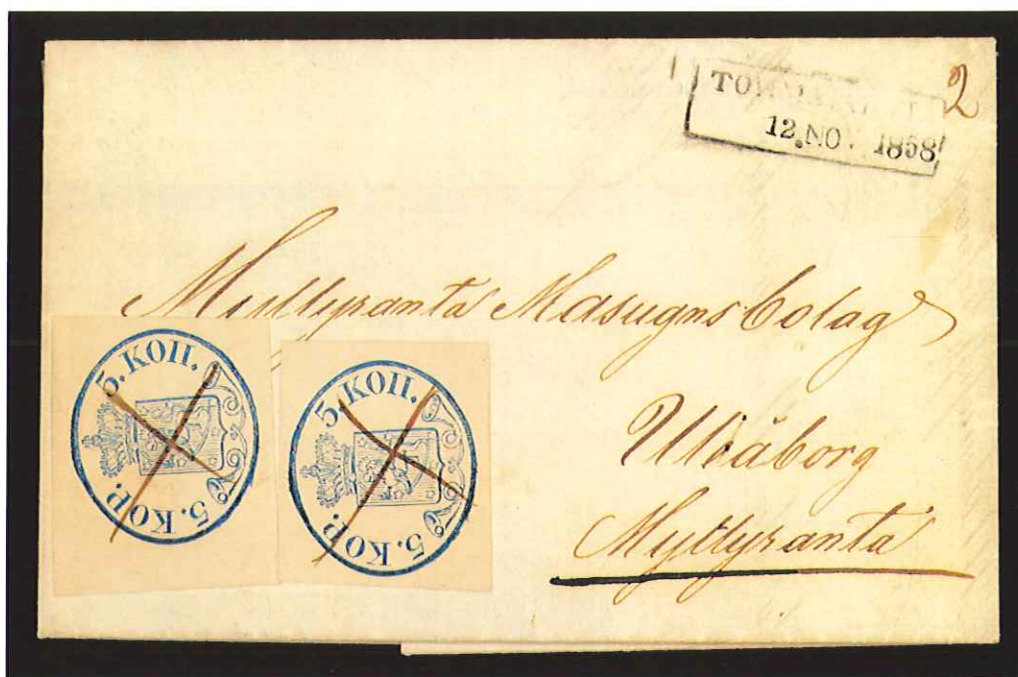 2
12. NOV. 1858
Myllyranta Masugnsbolag
Uleåborg
Myllyranta
5. КОП. 5. KOP.
5. КОП. 5. KOP.